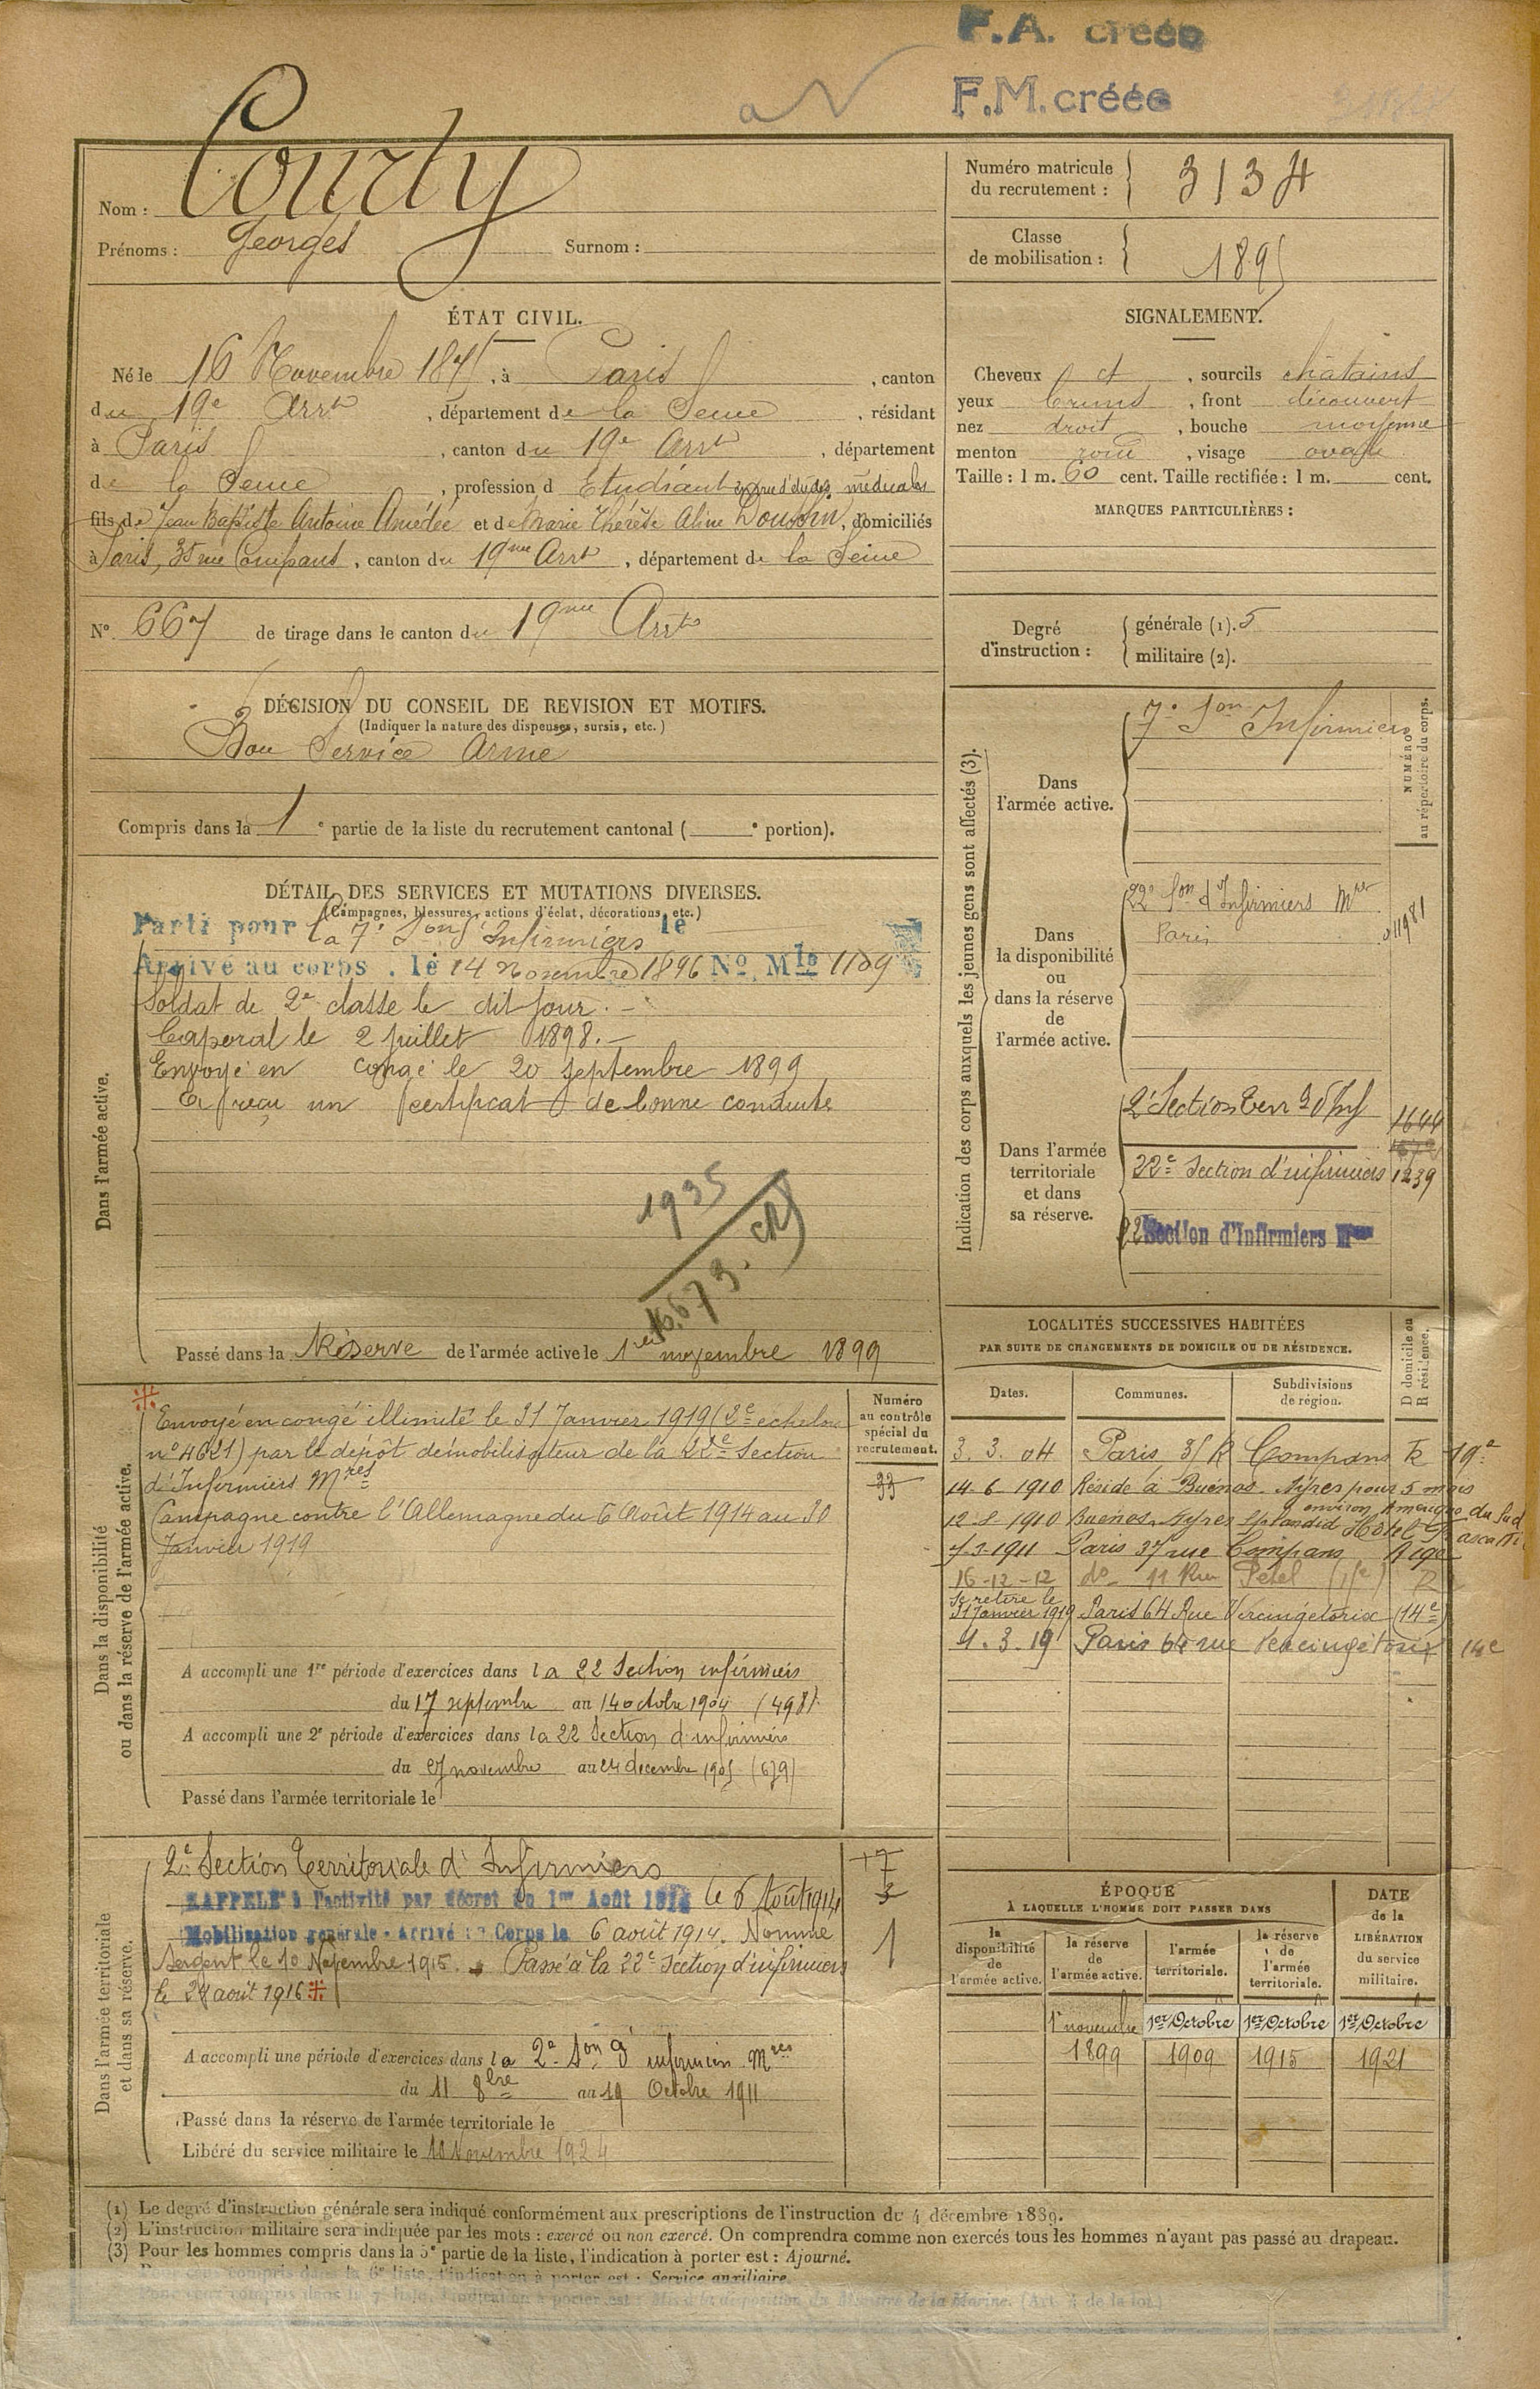 F.A. créée
F.M. créée
Nom : Courty
Prénoms : Georges Surnom :
Numéro matricule du recrutement : 3134
Classe de mobilisation : 1895
ÉTAT CIVIL.
Né le 16 Novembre 1875, à Paris, canton
du 19e Arrt, département de la Seine, résidant
à Paris, canton du 19e Arrt, département
de la Seine, profession d Etudiant en vue d'études médicales
fils de Jean Baptiste Antoine Amédée et de Marie Thérèse Aline, domiciliés
à Paris, 35 rue Compans, canton du 19me Arrt, département de la Seine
N° 667 de tirage dans le canton du 19me Arrt
SIGNALEMENT.
Cheveux et, sourcils châtains
yeux bruns, front découvert
nez droit, bouche moyenne
menton rond, visage ovale
Taille : 1 m. 60 cent. Taille rectifiée : 1 m. cent.
MARQUES PARTICULIÈRES :
Degré d'instruction :
générale (1). 5
militaire (2).
DÉCISION DU CONSEIL DE REVISION ET MOTIFS.
(Indiquer la nature des dispenses, sursis, etc.)
Bon Service Armé
Compris dans la 1e partie de la liste du recrutement cantonal ( e portion).
DÉTAIL DES SERVICES ET MUTATIONS DIVERSES.
(Campagnes, blessures, actions d'éclat, décorations, etc.)
Dans l'armée active.
Parti pour la 7e Son d'Infirmiers le
Arrivé au corps . le 14 Novembre 1896 No Mle 1109
Soldat de 2e classe le dit jour. -
Caporal le 2 juillet 1898. -
Envoyé en congé le 20 septembre 1899
A reçu un certificat de bonne conduite
1935
16.673. CR
Passé dans la Réserve de l'armée active le 1er novembre 1899
Indication des corps auxquels les jeunes gens sont affectés (3).
NUMÉRO au répertoire du corps.
Dans l'armée active.
7e Son Infirmiers
Dans la disponibilité ou dans la réserve de l'armée active.
22e Son d'Infirmiers Mres
Paris
11981
Dans l'armée territoriale et dans sa réserve.
2e Section Terr le d'Inf 1644
22e Section d'infirmiers 1239
22 Section d'Infirmiers Mres
Dans la disponibilité ou dans la réserve de l'armée active.
Numéro au contrôle spécial du recrutement.
33
Envoyé en congé illimité le 31 Janvier 1919 (2e échelon
n° 4621) par le dépôt démobilisateur de la 22e Section
d'Infirmiers Mres
Campagne contre l'Allemagne du 6 Août 1914 au 30
Janvier 1919
A accompli une 1re période d'exercices dans la 22 Section infirmiers
du 17 septembre au 14 octobre 1904 (498)
A accompli une 2e période d'exercices dans la 22 Section d'infirmiers
du 27 novembre au 24 decembre 1905 (679)
Passé dans l'armée territoriale le
LOCALITÉS SUCCESSIVES HABITÉES
PAR SUITE DE CHANGEMENTS DE DOMICILE OU DE RÉSIDENCE.
Dates. Communes. Subdivisions de région. D domicile ou R résidence.
3. 3. 04 Paris 35 R Compans R 19e
14. 6 1910 Réside à Buenos-Ayres pour 5 mois
environ Amérique du Sud
12-8-1910 Buenos-Ayres Splendid Hôtel
7-3-1911 Paris 37 rue Compans R 19e
16-12-12 do 11 Rue Petel (15e) R
Se retire le
31 Janvier 1919 Paris 64 Rue Vercingétorix (14e)
4. 3. 19 Paris 64 rue Vercingétorix 14e
Dans l'armée territoriale et dans sa réserve.
2e Section Territoriale d'Infirmiers
RAPPELÉ à l'activité par décret du 1er Août 1914 le 6 Août 1914
Mobilisation générale - Arrivé au Corps le 6 août 1914. Nommé
Sergent le 10 Novembre 1915. Passé à la 22e Section d'infirmiers
le 24 août 1916
1
A accompli une période d'exercices dans la 2e Son d'infirmiers Mres
du 11 8bre au 19 Octobre 1911
Passé dans la réserve de l'armée territoriale le
Libéré du service militaire le 10 Novembre 1924
ÉPOQUE
À LAQUELLE L'HOMME DOIT PASSER DANS
DATE de la LIBÉRATION du service militaire.
la disponibilité de l'armée active.
la réserve de l'armée active.
l'armée territoriale.
la réserve de l'armée territoriale.
1er novembre 1er Octobre 1er Octobre 1er Octobre
1899 1909 1915 1921
(1) Le degré d'instruction générale sera indiqué conformément aux prescriptions de l'instruction du 4 décembre 1889.
(2) L'instruction militaire sera indiquée par les mots : exercé ou non exercé. On comprendra comme non exercés tous les hommes n'ayant pas passé au drapeau.
(3) Pour les hommes compris dans la 5e partie de la liste, l'indication à porter est : Ajourné.
Pour ceux compris dans la 6e liste, l'indication à porter est : Service auxiliaire.
Pour ceux compris dans la 7e liste, l'indication à porter est : Mis à la disposition du Ministre de la Marine. (Art. 4 de la loi.)